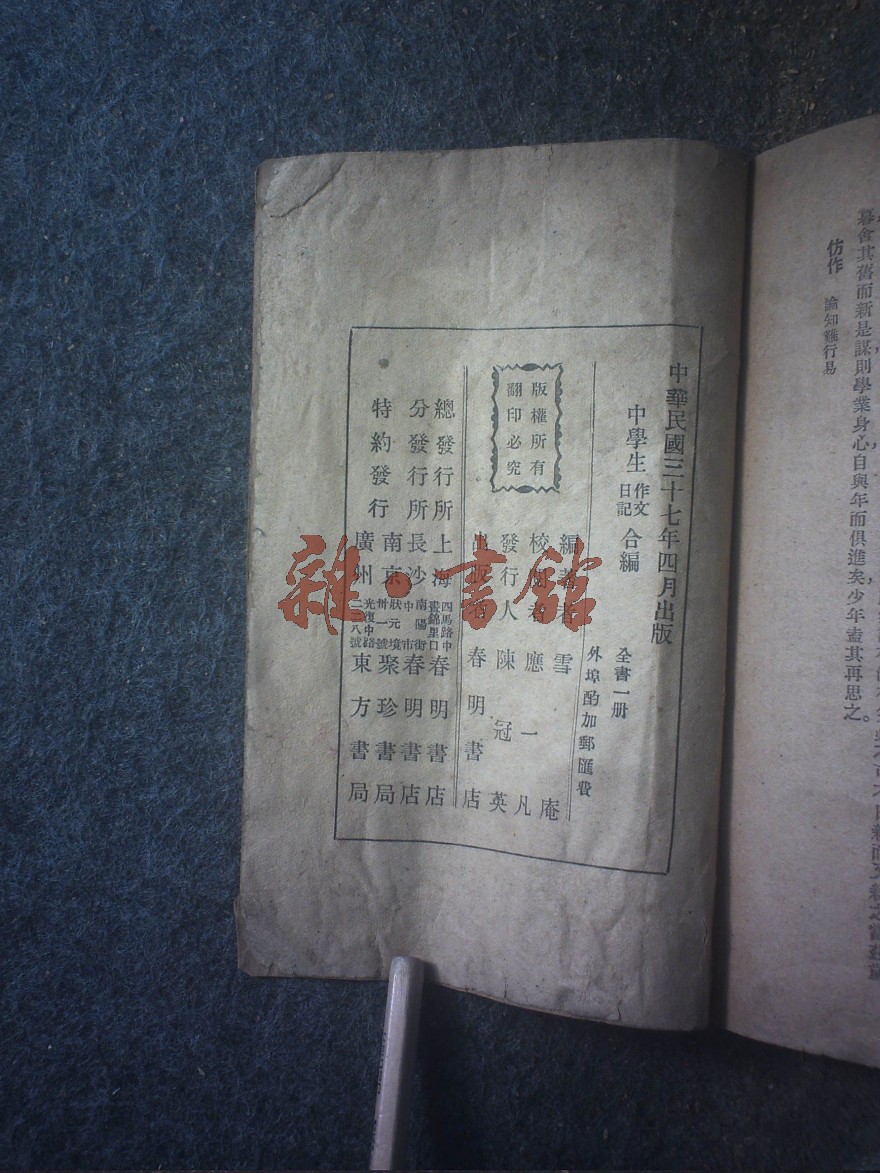 幕會其舊而新是謀則學業身心自與年而俱進矣少年盍其再思之。
仿作　論知難行易
中華民國三十七年四月出版
中學生作文日記合編
全書一册
外埠酌加郵匯費
版權所有
翻印必究
編著者　雪庵
校閱者　應一凡
發行人　陳冠英
出版者　春明書店
總發行所　上海四馬路中晝錦里口　春明書店
分發行所　長沙中市南陽街　春明書店
特約發行　南京狀元境卅一號　聚珍書局
廣州光復中路二二八號　東方書局
雜·書館